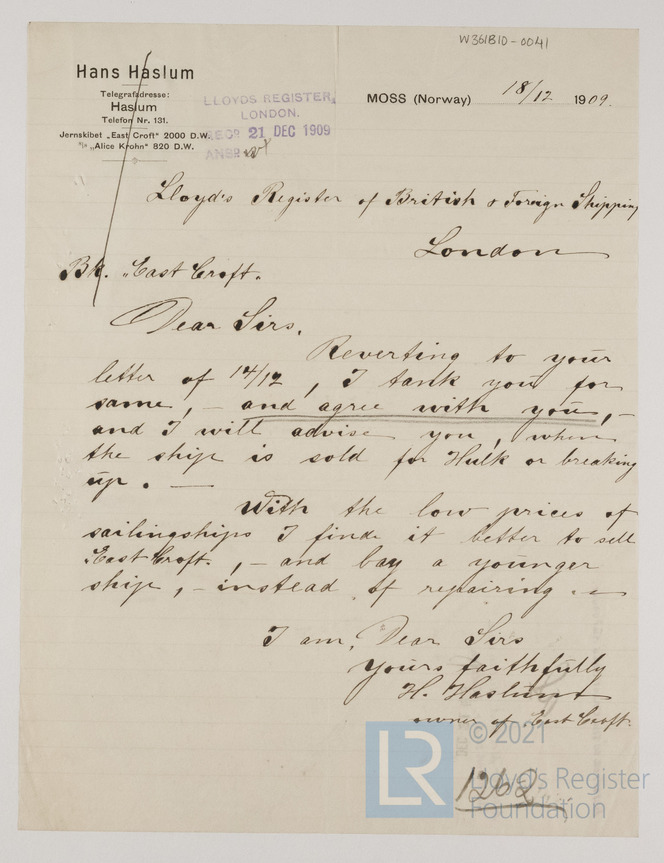 W361B10-0041
Hans Haslum
Telegrafadresse:
Haslum
Telefon Nr. 131.
Jernskibet „East Croft" 2000 D.W.
S/s „Alice Krohn" 820 D.W.
LLOYDS REGISTER,
LONDON.
REC'D 21 DEC 1909
ANS'D
MOSS (Norway) 18/12 1909.
Lloyd's Register of British & Foreign Shipping
London
Bk. „East Croft".
Dear Sirs,
Reverting to your
letter of 14/12, I tank you for
same, – and agree with you, –
and I will advise you, when
the ship is sold for Hulk or breaking
up. —
With the low prices of
sailingships I finde it better to sell
„East Croft", – and bay a younger
ship, – instead of repairing. –
I am, Dear Sirs
Yours faithfully
H. Haslum
owner of East Croft.
1262
© 2021
LR Lloyd's Register
Foundation